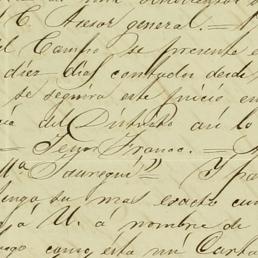 C. Asesor general. —
el Campo se presente e
diez dias contados desde
se seguira este juicio en
del Distrito asi lo
— Tenor Franco. —
Mª Jáuregui" Y pa
tenga su mas exacta cum
jo á U. á nombre de
como esta mi Carta